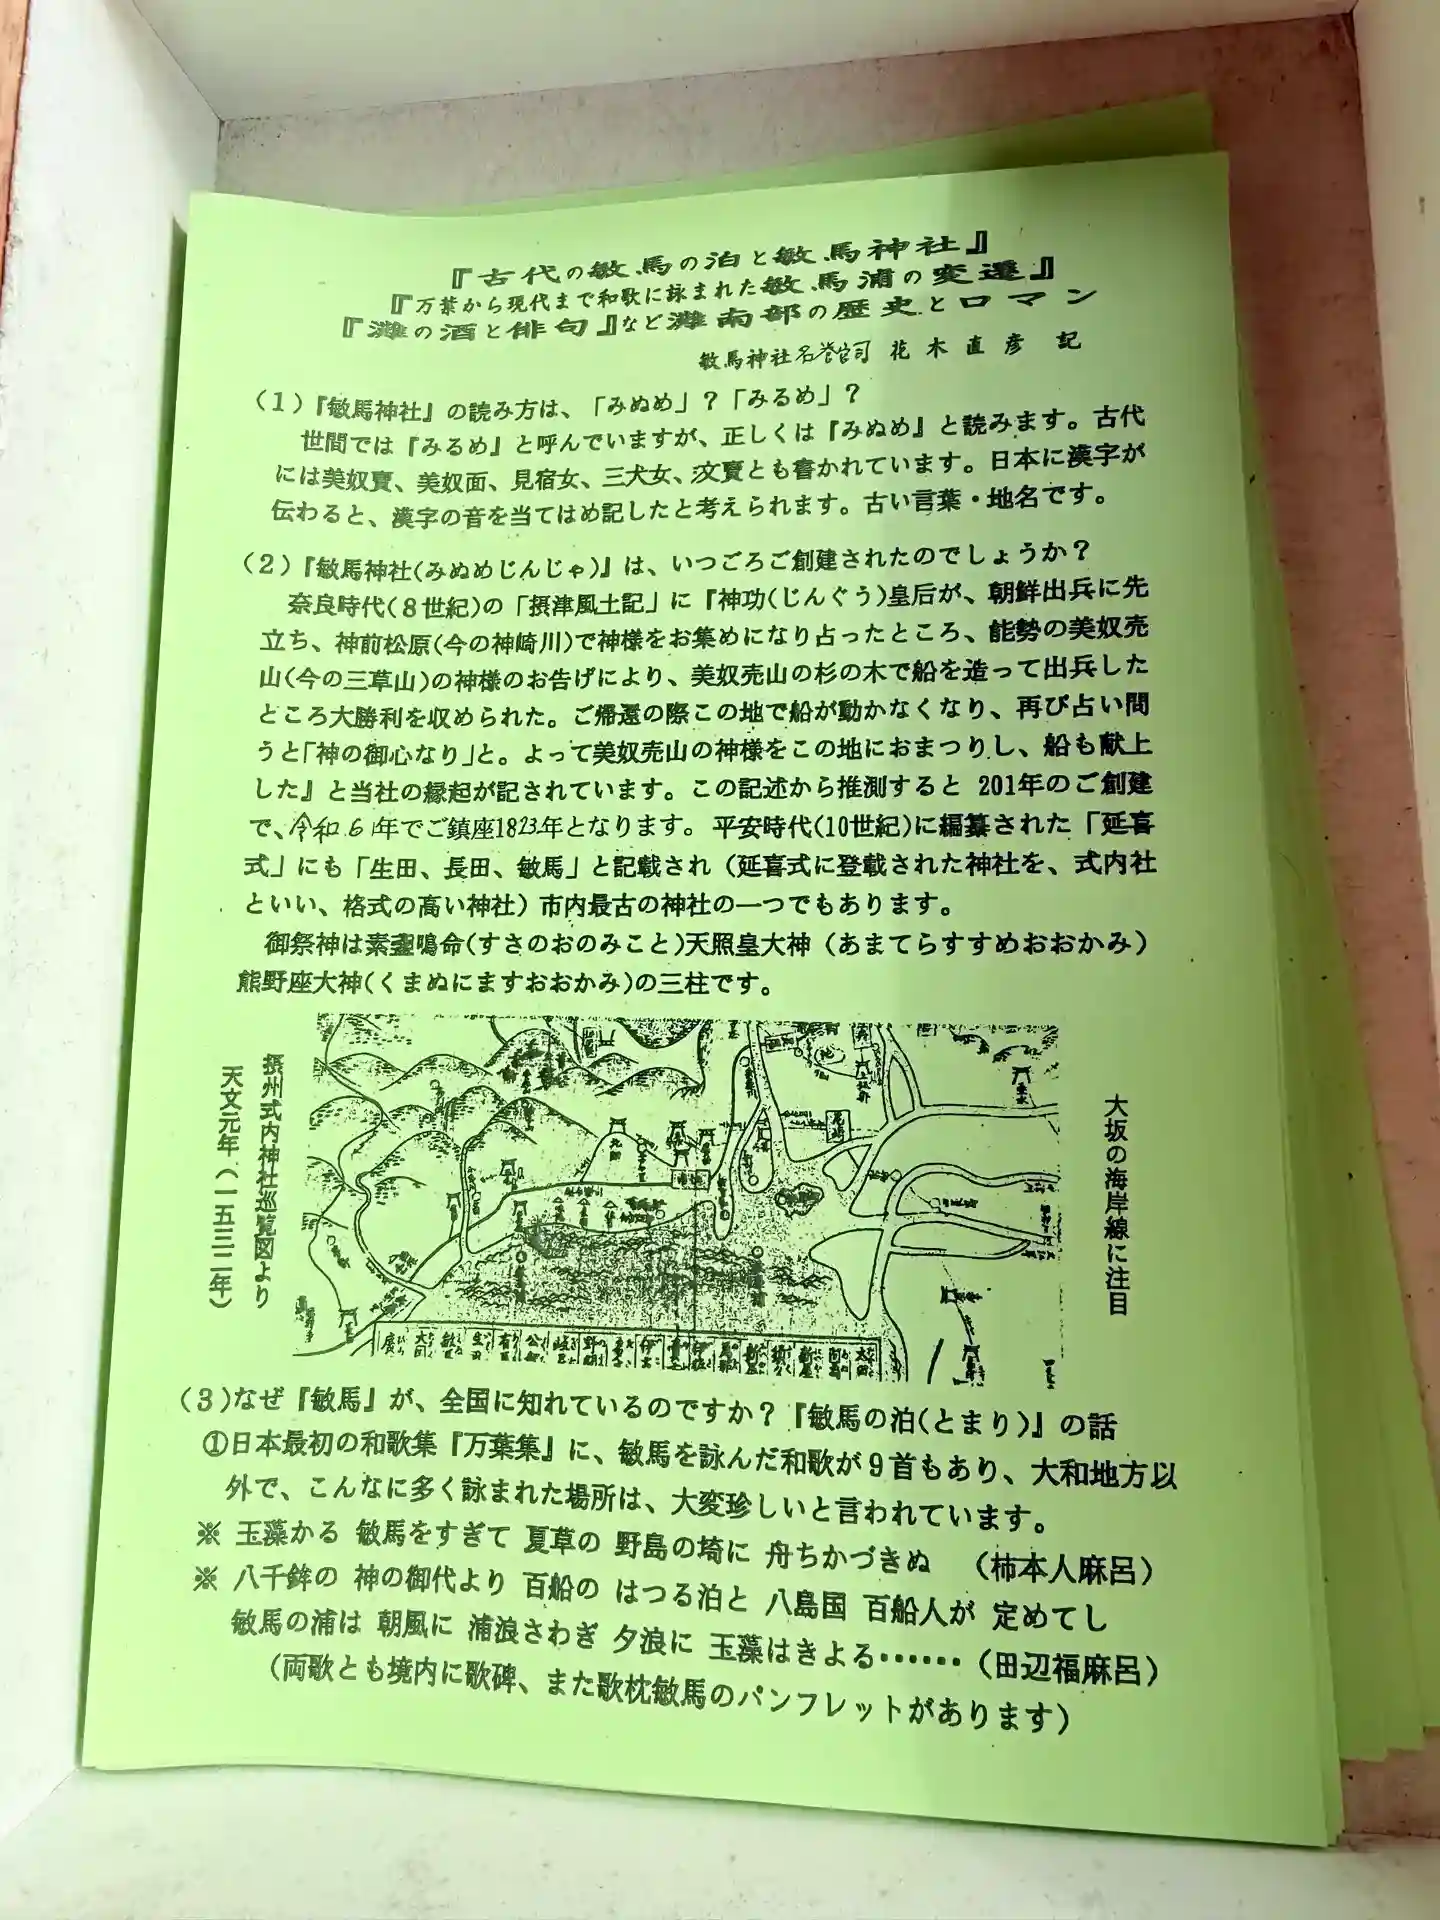 『古代の敏馬の泊と敏馬神社』
『万葉から現代まで和歌に詠まれた敏馬浦の変遷』
『灘の酒と俳句』など灘南部の歴史とロマン
敏馬神社名誉宮司 花木直彦 記
(1)『敏馬神社』の読み方は、「みぬめ」?「みるめ」?
世間では『みるめ』と呼んでいますが、正しくは『みぬめ』と読みます。古代
には美奴賣、美奴面、見宿女、三犬女、汶賣とも書かれています。日本に漢字が
伝わると、漢字の音を当てはめ記したと考えられます。古い言葉・地名です。
(2)『敏馬神社(みぬめじんじゃ)』は、いつごろご創建されたのでしょうか?
奈良時代(8世紀)の「摂津風土記」に『神功(じんぐう)皇后が、朝鮮出兵に先
立ち、神前松原(今の神崎川)で神様をお集めになり占ったところ、能勢の美奴売
山(今の三草山)の神様のお告げにより、美奴売山の杉の木で船を造って出兵した
ところ大勝利を収められた。ご帰還の際この地で船が動かなくなり、再び占い問
うと「神の御心なり」と。よって美奴売山の神様をこの地におまつりし、船も献上
した』と当社の縁起が記されています。この記述から推測すると 201年のご創建
で、令和6年でご鎮座1823年となります。平安時代(10世紀)に編纂された「延喜
式」にも「生田、長田、敏馬」と記載され(延喜式に登載された神社を、式内社
といい、格式の高い神社)市内最古の神社の一つでもあります。
御祭神は素盞鳴命(すさのおのみこと)天照皇大神(あまてらすすめおおかみ)
熊野座大神(くまぬにますおおかみ)の三柱です。
大坂の海岸線に注目
摂州式内神社巡覧図より
天文元年(一五三二年)
(3)なぜ『敏馬』が、全国に知れているのですか?『敏馬の泊(とまり)』の話
①日本最初の和歌集『万葉集』に、敏馬を詠んだ和歌が9首もあり、大和地方以
外で、こんなに多く詠まれた場所は、大変珍しいと言われています。
※ 玉藻かる 敏馬をすぎて 夏草の 野島の埼に 舟ちかづきぬ (柿本人麻呂)
※ 八千鉾の 神の御代より 百船の はつる泊と 八島国 百船人が 定めてし
敏馬の浦は 朝風に 浦浪さわぎ 夕浪に 玉藻はきよる……(田辺福麻呂)
(両歌とも境内に歌碑、また歌枕敏馬のパンフレットがあります)